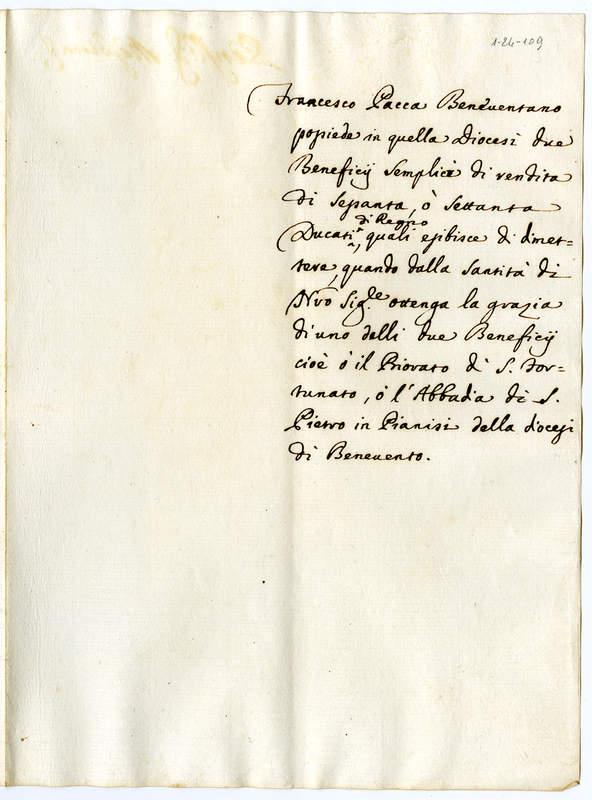 1-24-109
Francesco Pacca Beneventano
possiede in quella Diocesi due
Beneficij semplici di rendita
di sessanta, ò settanta
di Regno
Ducati, quali esibisce di dimet=
tere, quando dalla Santità di
Nr̃o Sig.re ottenga la grazia
di uno delli due Beneficij
cioè ò il Priorato di S. For=
tunato, ò l'Abbadia di S.
Pietro in Pianisi della diocesi
di Benevento.